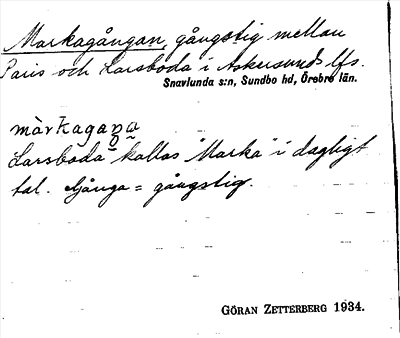 Markagångan, gångstig mellan
Paris och Larsboda i Askersunds lfs.
Snavlunda s:n, Sundbo hd, Örebro län.
màrkagaŋa
Larsboda kallas "Marka" i dagligt
tal. Gånga = gångstig.
GÖRAN ZETTERBERG 1934.